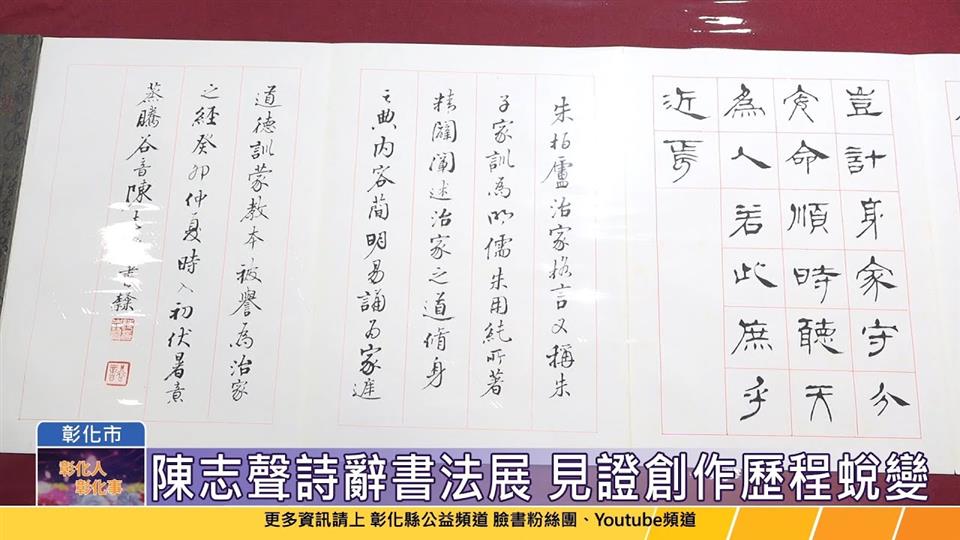 豈計身家守分
安命順時聽天
為人若此庶乎
近焉
朱栢廬治家格言又稱朱
子家訓為明儒朱用純所著
精闢闡述治家之道脩身
之典內容簡明易誦為家庭
道德訓蒙教本被譽為治家
之經癸卯仲夏時入初伏暑意
蒸騰谷音陳 書隸
彰化市
彰化人
彰化事
陳志聲詩辭書法展 見證創作歷程蛻變
更多資訊請上 彰化縣公益頻道 臉書粉絲團、Youtube頻道